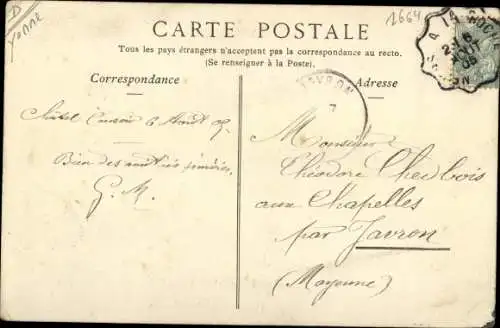 D
Yonne
1664
CARTE POSTALE
Tous les pays étrangers n'acceptent pas la correspondance au recto.
(Se renseigner à la Poste).
Correspondance
Adresse
JAVRON
7
6 Août 05
Bien des amitiés
G. M.
Monsieur
Théodore
aux Chapelles
par Javron
(Mayenne)